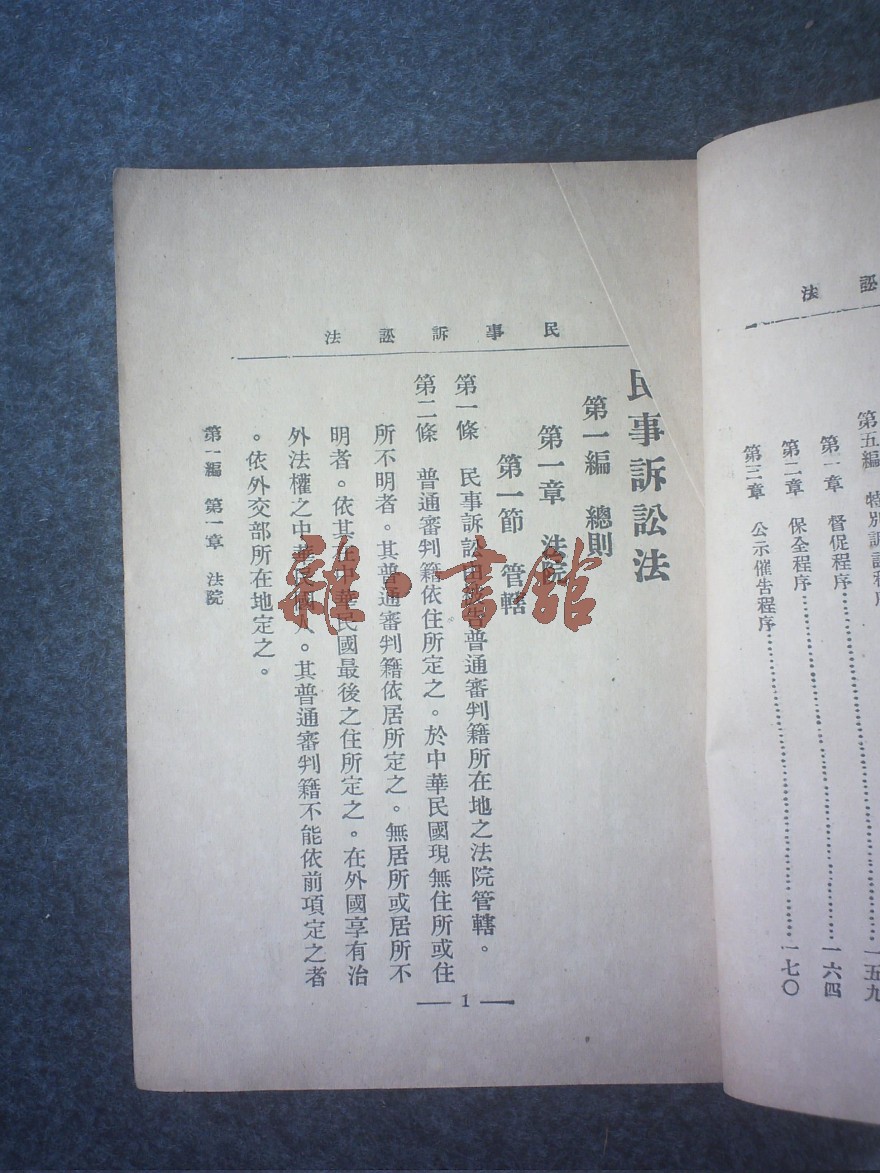 訟法
第五編 特別訴訟程序……一五九
第一章 督促程序……一六四
第二章 保全程序……一七〇
第三章 公示催告程序
民事訴訟法
民事訴訟法
第一編 總則
第一章 法院
第一節 管轄
第一條 民事訴訟由被告普通審判籍所在地之法院管轄。
第二條 普通審判籍依住所定之。於中華民國現無住所或住
所不明者。其普通審判籍依居所定之。無居所或居所不
明者。依其在中華民國最後之住所定之。在外國享有治
外法權之中華民國人。其普通審判籍不能依前項定之者
。依外交部所在地定之。
第一編 第一章 法院
— 1 —
雜·書館